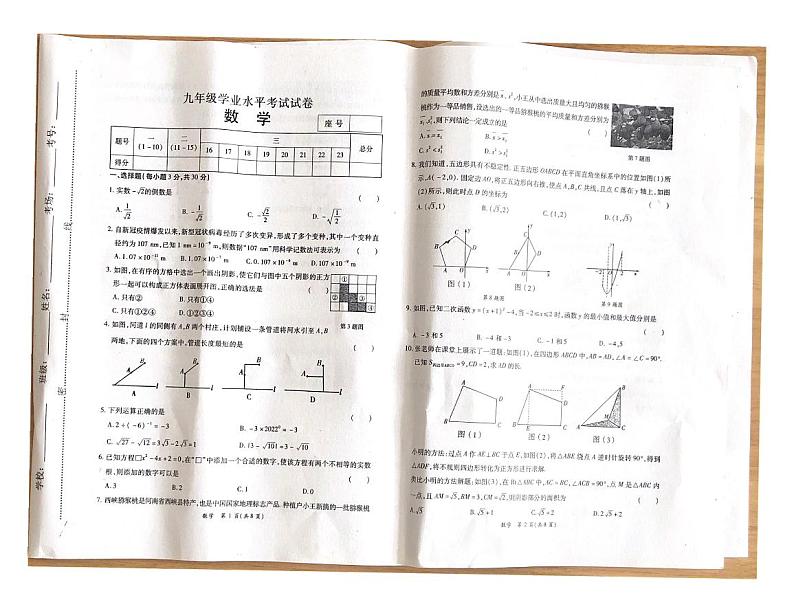 考号：
考场：
姓名：
班级：
学校：
线
封
密
九年级学业水平考试试卷
数 学
座 号
题号 一 (1－10) 二 (11－15) 三 16 17 18 19 20 21 22 23 总分
得分
一、选择题(每小题3分,共30分)
1. 实数－√2的倒数是 ( )
A. 1/√2 B. －1/√2 C. －√2/2 D. －√(1/2)
2. 自新冠疫情爆发以来,新型冠状病毒经历了多次变异,形成了多个变种,其中一个变种直
径约为 107 nm,已知 1 nm＝10⁻⁹ m,则数据“107 nm”用科学记数法可表示为 ( )
B. 1.07×10⁻⁷ m C. 0.107×10⁻⁶ m D. 10.7×10⁻⁸ m
3. 如图,在有序的方格中选出一个画出阴影,使它们与图中五个阴影的正方
形一起可以构成正方体表面展开图,正确的选法是 ( )
A. 只有② B. 只有①④
C. 只有②③④ D. ①②③④
第 3 题图
4. 如图,河道 l 的同侧有 A,B 两个村庄,计划铺设一条管道将河水引至 A,B
两地,下面的四个方案中,管道长度最短的是 ( )
A. B. C. D.
5. 下列运算正确的是 ( )
A. 2÷(－6)⁻¹＝－3 B. －3×2022⁰＝－3
C. √27－√12＝3√3－2√3＝1 D. |3－√10|＝√10－3
6. 已知方程□x²－4x＋2＝0,在“□”中添加一个合适的数字,使该方程有两个不相等的实数
根,则添加的数字可以是 ( )
A. 3 B. 2 C. 1 D. 0
7. 西峡猕猴桃是河南省西峡县特产,也是中国国家地理标志产品.种植户小王新摘的一批猕猴桃
数学 第 1 页(共 8 页)
的质量平均数和方差分别是 x̄,s²,小王从中选出质量大且均匀的猕猴
桃作为一等品销售,设选出的一等品猕猴桃的平均质量和方差分别为
x̄₁,s₁²,则下列结论一定成立的是 ( )
A. x̄＝x̄₁ B. x̄＞x̄₁
第 7 题图
8. 我们知道,五边形具有不稳定性.正五边形 OABCD 在平面直角坐标系中的位置如图(1)所
示,A(－2,0).固定边 AO,将正五边形向右推,使点 A,B,C 共线,且点 C 落在 y 轴上,如图
(2)所示,则此时点 D 的坐标为 ( )
A. (√3,1) B. (√3,2) C. (1,2) D. (1,√3)
图 (1) 图 (2)
第 8 题图 第 9 题图
9. 如图,已知二次函数 y＝(x＋1)²－4,当－2≤x≤2 时,函数 y 的最小值和最大值分别是
( )
A. －3 和 5 B. －4 和 5 C. －4 和－3 D. －1 和 5
10. 张老师在课堂上展示了一道题:如图(1),在四边形 ABCD 中,AB＝AD,∠A＝∠C＝90°.
已知 S四边形ABCD＝9,CD＝2,求 CD 的长.
图 (1) 图 (2) 图 (3)
小明的方法:过点 A 作 AE⊥BC 于点 E,如图(2),将△ABE 绕点 A 逆时针旋转 90°,得到
△ADF,将不规则四边形转化为正方形进行求解.
类比小明的方法解题:如图(3),在 Rt△ABC 中,AC＝BC,∠ACB＝90°,点 M 是△ABC 内
一点,且 AM＝√5,BM＝3,CM＝√2,则阴影部分的面积为 ( )
A. √5 B. √5＋1 C. √5＋2 D. 2√5＋2
数学 第 2 页(共 8 页)